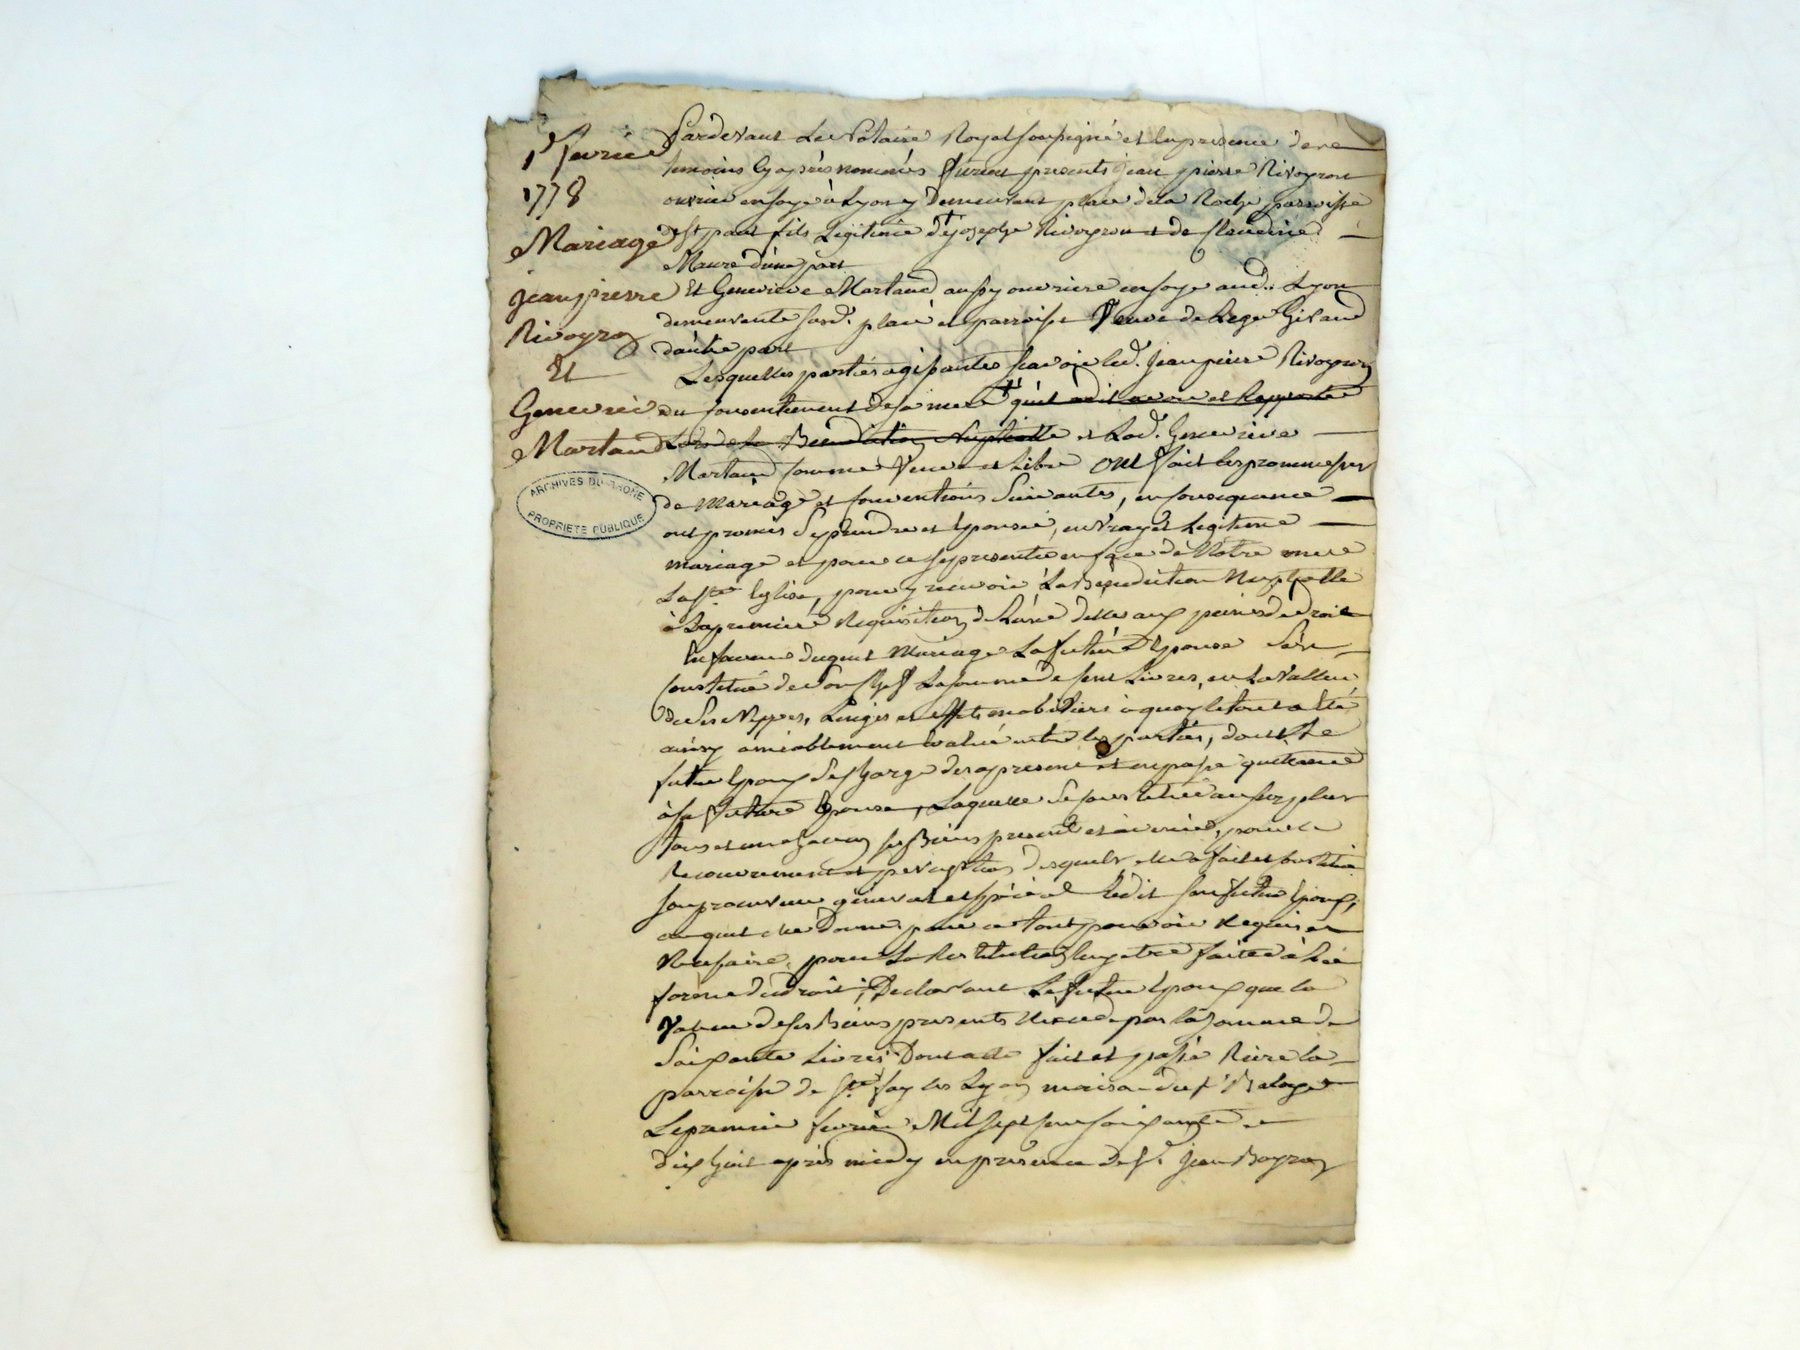 1er fevrier
1778
Mariage
jean pierre
Rivoyron
Et
Genevieve
Martaud
ARCHIVES DU RHONE
PROPRIETE PUBLIQUE
Pardevant Le Notaire Royal soussigné et en presence de
temoins cy aprés nommés furent presents jean pierre Rivoyron
ouvrier en soye à Lyon y Demeurant place de la Roche parroisse
de st paul fils Legitime de joseph Rivoyron et de Claudine
Maure d'une part
Et Genevieve Martaud aussy ouvriere en soye aud. Lyon
demeurante susd. place et parroisse Veuve de Leger Giraud
d'autre part
Lesquelles parties agissantes scavoir led. jean pierre Rivoyron
du consentement de sa mere qu'il a dit avoir et Rapporter
Lors de la Benediction Nuptialle et Lad. Genevieve
Martaud comme Veuve et Libre ont fait les promesses
de mariage et conventions Suivantes, en consequence
ont promis Se prendre et Epouser, en vray et Legitime
mariage et pour ce se presenter en face de Notre mere
La ste Eglise, pour y recevoir La Benediction Nuptialle
à La premiere Requisition de L'un d'eux aux peines de Droit
En faveur duquel Mariage La future Epouse s'est
Constitué de Son Chef La somme de cent Livres, en La Valleur
de Ses Nippes, Linges et effets mobiliers à quoy le tout a été
ainsy amiablement Evalué entre les parties, dont Le
futur Epoux Se charge des apresent et en passe quittance
à sa future Epouse, Laquelle Se constitue au surplus
tous et un chacun ses Biens present et à venir, pour le
Recouvrement et perception desquels elle a fait et constitué
son procureur general et special Ledit son futur Epoux,
auquel elle Donne pour ce tout pouvoir Requis et
Necessaire, pour La Restitution En etre faite à La
forme du Droit, Declarant Le futur Epoux que la
Valeur de ses Biens presents N'excede pas la Somme de
Soixante Livres Dont acte fait et passé Riere la
parroisse de Ste foy les Lyon maison du sr
Le premier fevrier Mil sept cent soixante et
dix huit après midy en presence de sr. jean Boyron